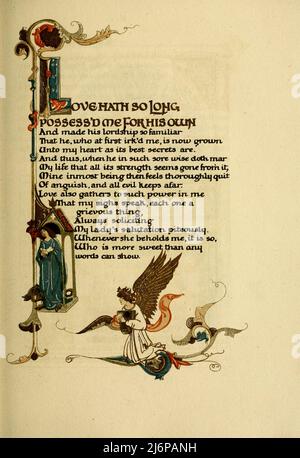 LOVE HATH SO LONG
POSSESS'D ME FOR HIS OWN
And made his lordship so familiar
That he, who at first irk'd me, is now grown
Unto my heart as its best secrets are.
And thus, when he in such sore wise doth mar
My life that all its strength seems gone from it,
Mine inmost being then feels thoroughly quit
Of anguish, and all evil keeps afar.
Love also gathers to such power in me
That my sighs speak, each one a
grievous thing,
Always soliciting
My lady's salutation piteously.
Whenever she beholds me, it is so,
Who is more sweet than any
words can show.
alamy
Image ID: 2J6PANH
www.alamy.com